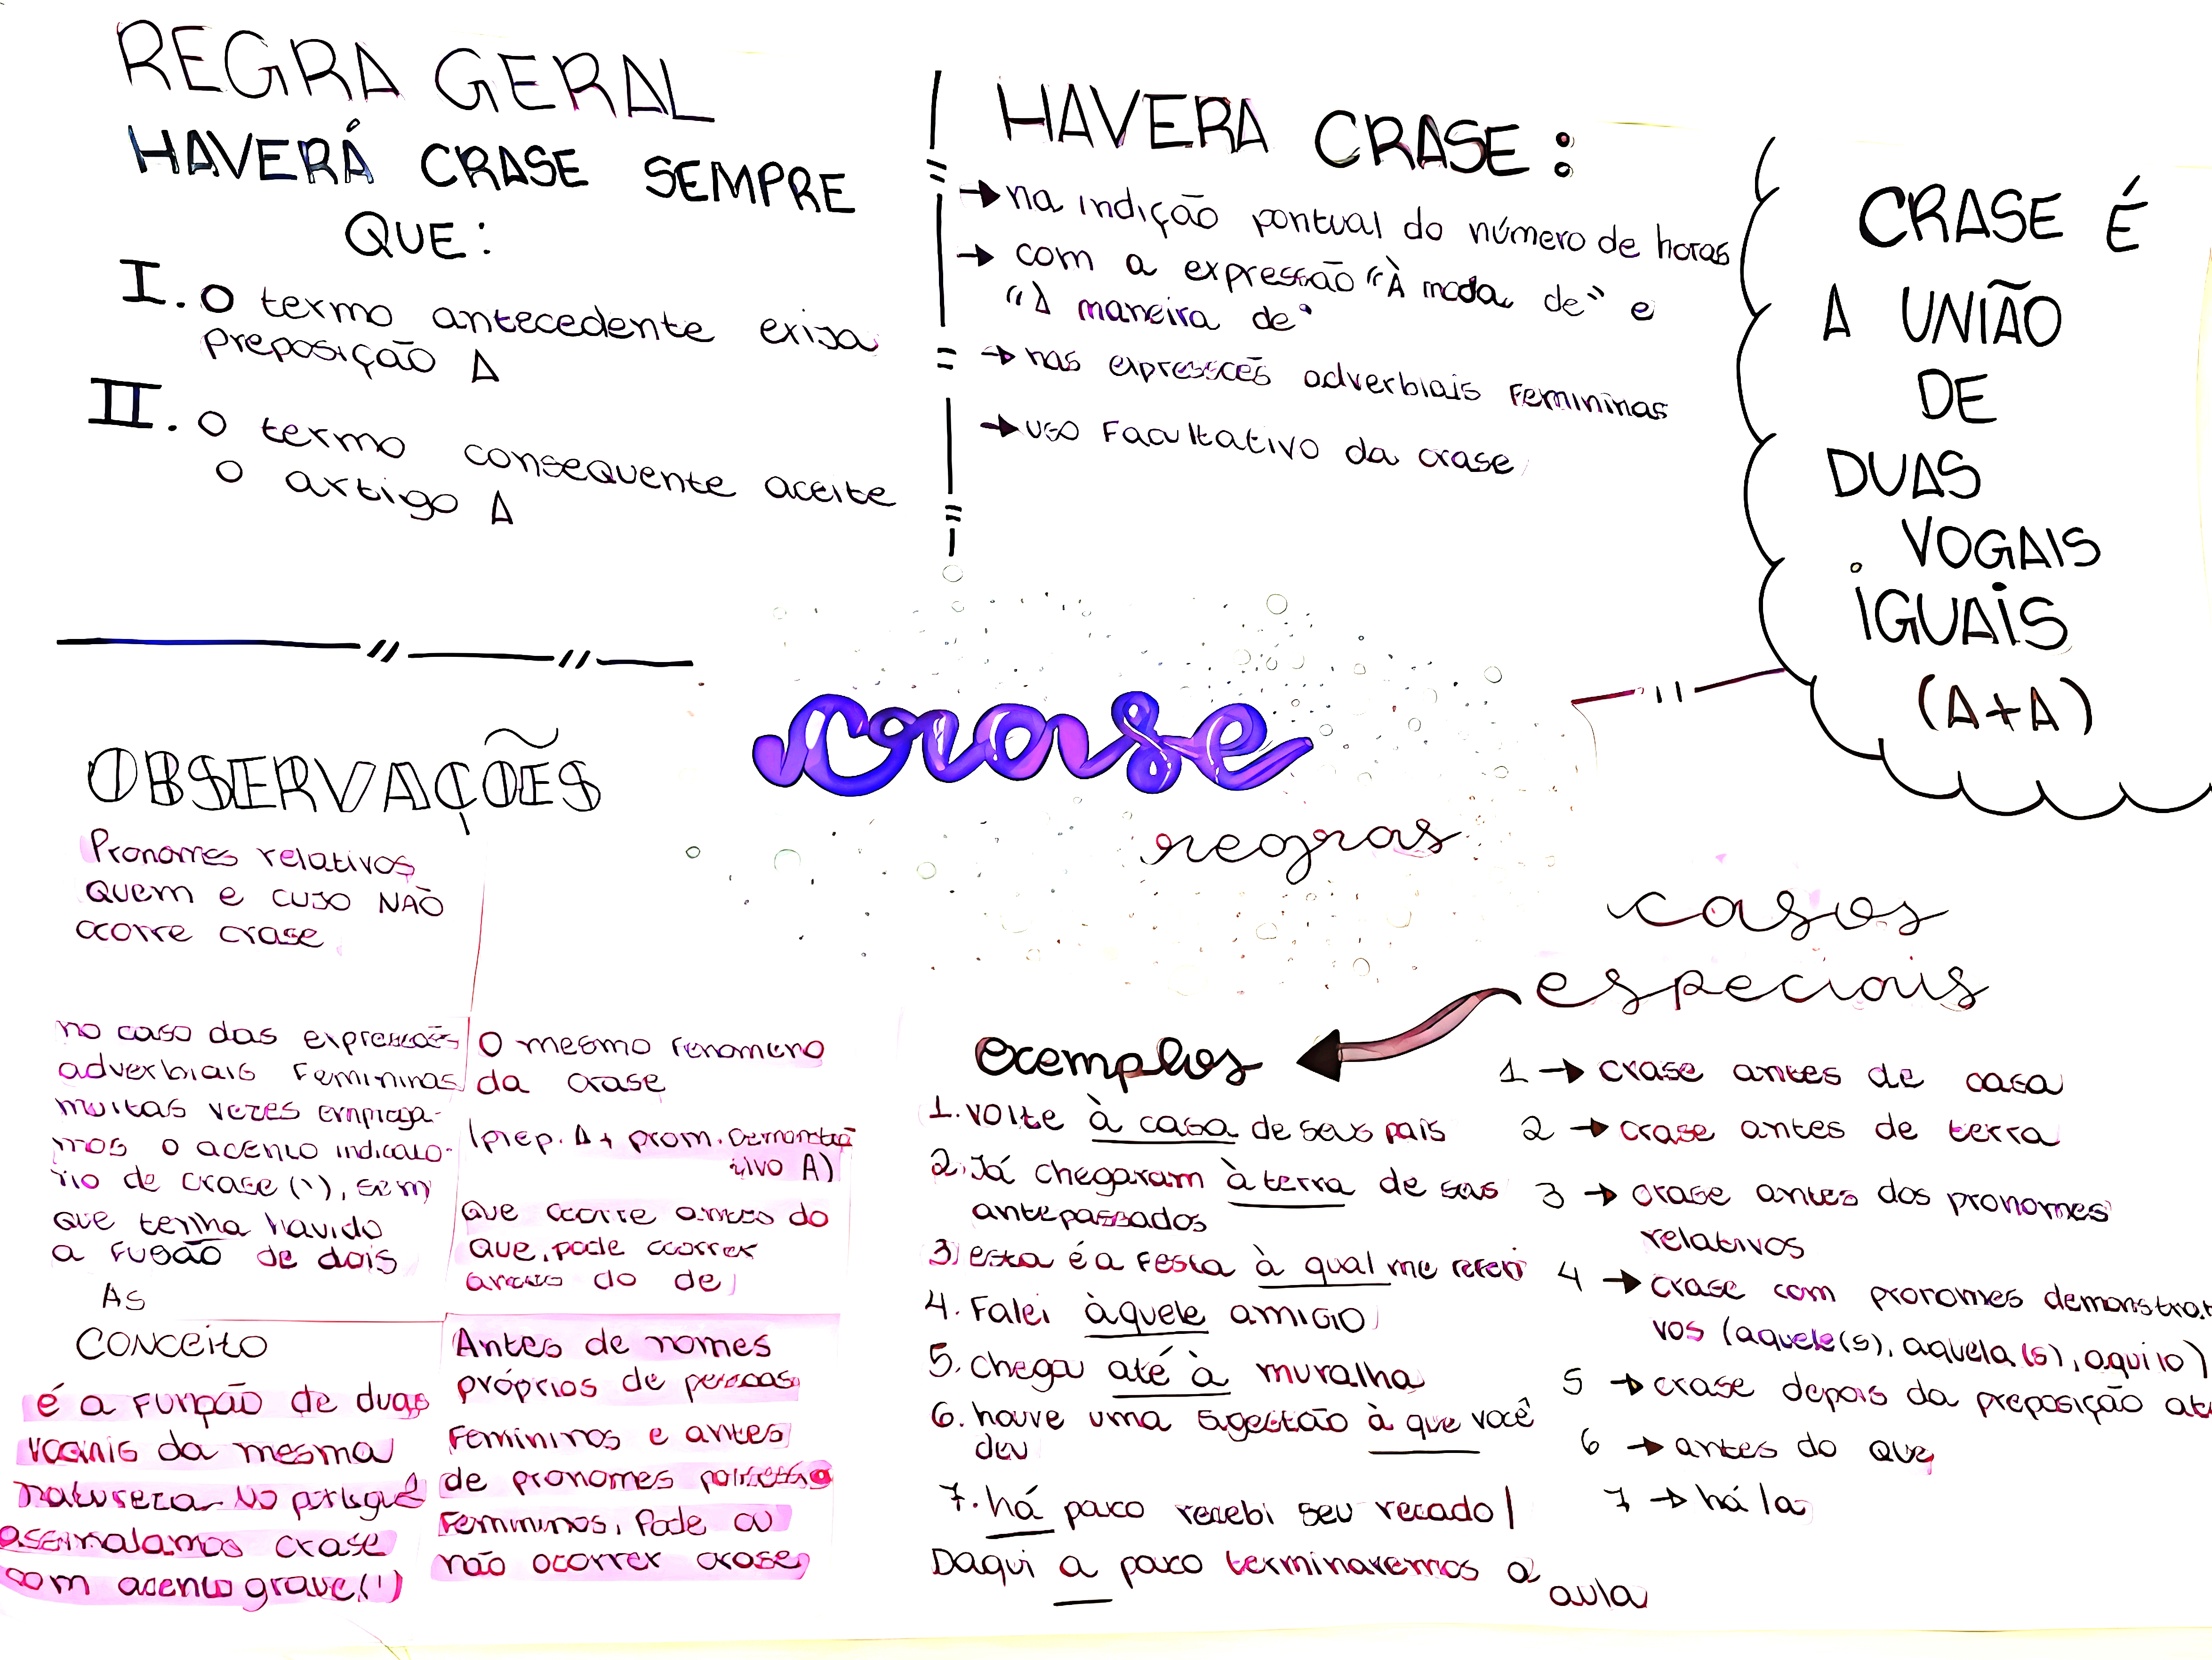 REGRA GERAL
HAVERÁ CRASE SEMPRE
QUE:
I. O termo antecedente exija
preposição A
II. O termo consequente aceite
o artigo A
HAVERA CRASE:
→ na indição pontual do número de horas
→ com a expressão "À moda de" e
"À maneira de"
→ nas expressões adverbiais Femininas
→ uso Facultativo da crase
CRASE É
A UNIÃO
DE
DUAS
VOGAIS
iGUAiS
(A+A)
crase
regras
OBSERVAÇÕES
Pronomes relativos
quem e cujo NÃO
ocorre crase
no caso das expressões
adverbiais Femininas
muitas vezes empraga-
mos o acento indicato-
rio de crase (`), sem
que tenha havido
a Fusão de dois
AS
O mesmo Fenomeno
da crase
(prep. A + pron. Demonstra
tivo A)
que ocorre antes do
que, pode ocorrer
antes do de
CONCEITO
é a Funpão de duas
vogais da mesma
natureza. No portuguê
assinalamos crase
com acento grave (`)
Antes de nomes
próprios de pessoas
Femininos e antes
de pronomes
Femininos, Pode ou
não ocorrer crase
casos
especiais
exemplos
1. volte à casa de seus pais
2. Já chegaram à terra de seus
antepassados
3) esta é a Festa à qual me referi
4. Falei àquele amigo
5. chegou até à muralha
6. houve uma sugestão à que você
deu
7. há pouco recebi seu recado |
Daqui a pouco terminaremos a
aula
1 → crase antes de casa
2 → crase antes de terra
3 → crase antes dos pronomes
relativos
4 → crase com pronomes demonstrati
vos (aquele(s), aquela(s), aquilo)
5 → crase depois da preposição at
6 → antes do que
7 → há la